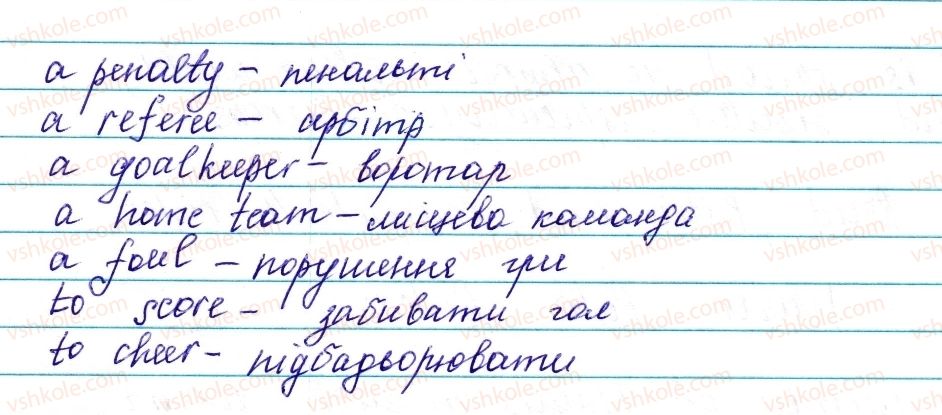 a penalty – пенальті
a referee – арбітр
a goalkeeper – воротар
a home team – місцева команда
a foul – порушення гри
to score – забивати гол
to cheer – підбадьорювати